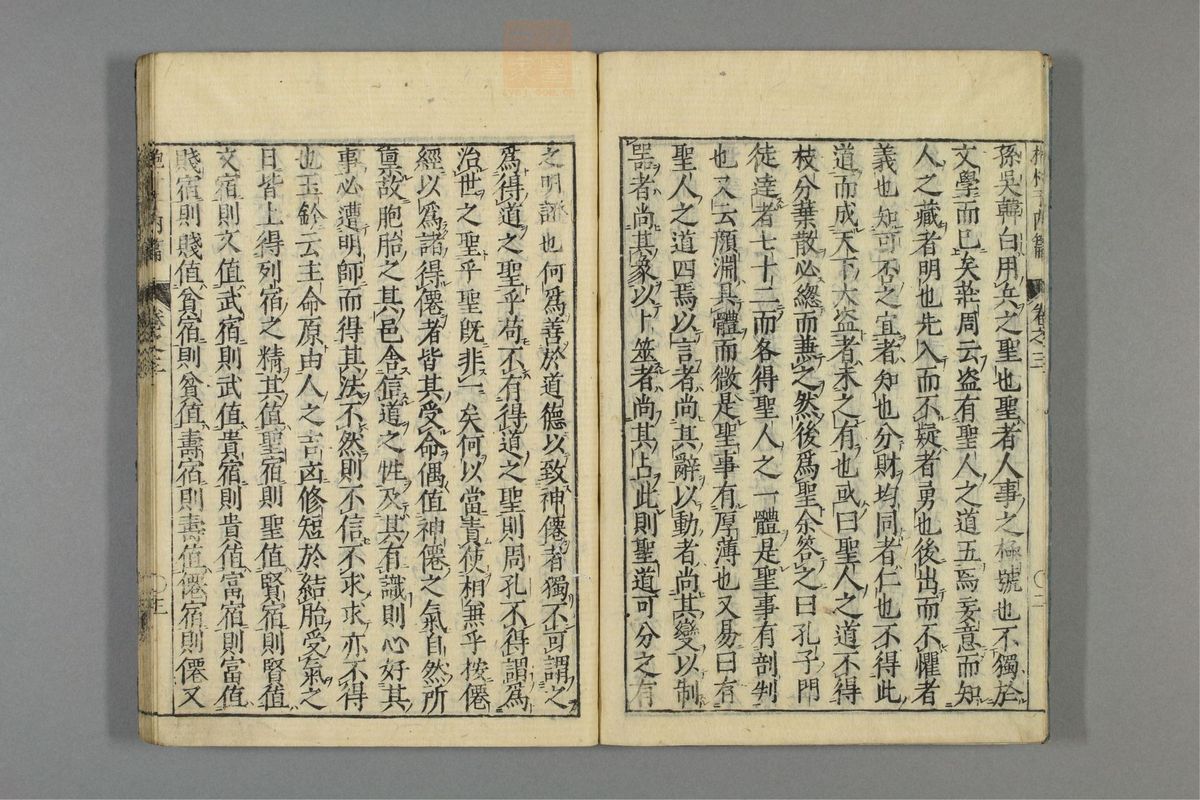 孫吳韓白用兵之聖也聖者人事之極號也不獨於
文學而已矣莊周云盗有聖人之道五焉妄意而知
人之藏者明也先入而不疑者勇也後出而不懼者
義也知可否之宜者知也分財均同者仁也不得此
道而成天下大盗者未之有也或曰聖人之道不得
枝分葉散必總而兼之然後爲聖余答之曰孔子門
徒達者七十二而各得聖人之一體是聖事有剖判
也又云顔淵具體而微是聖事有厚薄也又易曰有
聖人之道四焉以言者尚其辭以動者尚其變以制
噐者尚其象以卜筮者尚其占此則聖道可分之有
之明證也何爲善於道德以致神僊者獨不可謂之
爲得道之聖乎苟不有得道之聖則周孔不得謂爲
治世之聖乎聖既非一矣何以當責使相兼乎按僊
經以爲諸得僊者皆其受命偶值神僊之氣自然所
禀故胞胎之其邑含信道之性及其有識則心好其
事必遭明師而得其法不然則不信不求求亦不得
也玉鈐云主命原由人之吉凶修短於結胎受氣之
日皆上得列宿之精其值聖宿則聖值賢宿則賢值
文宿則文值武宿則武值貴宿則貴值富宿則富值
賤宿則賤值貧宿則貧值壽宿則壽值僊宿則僊又
内篇